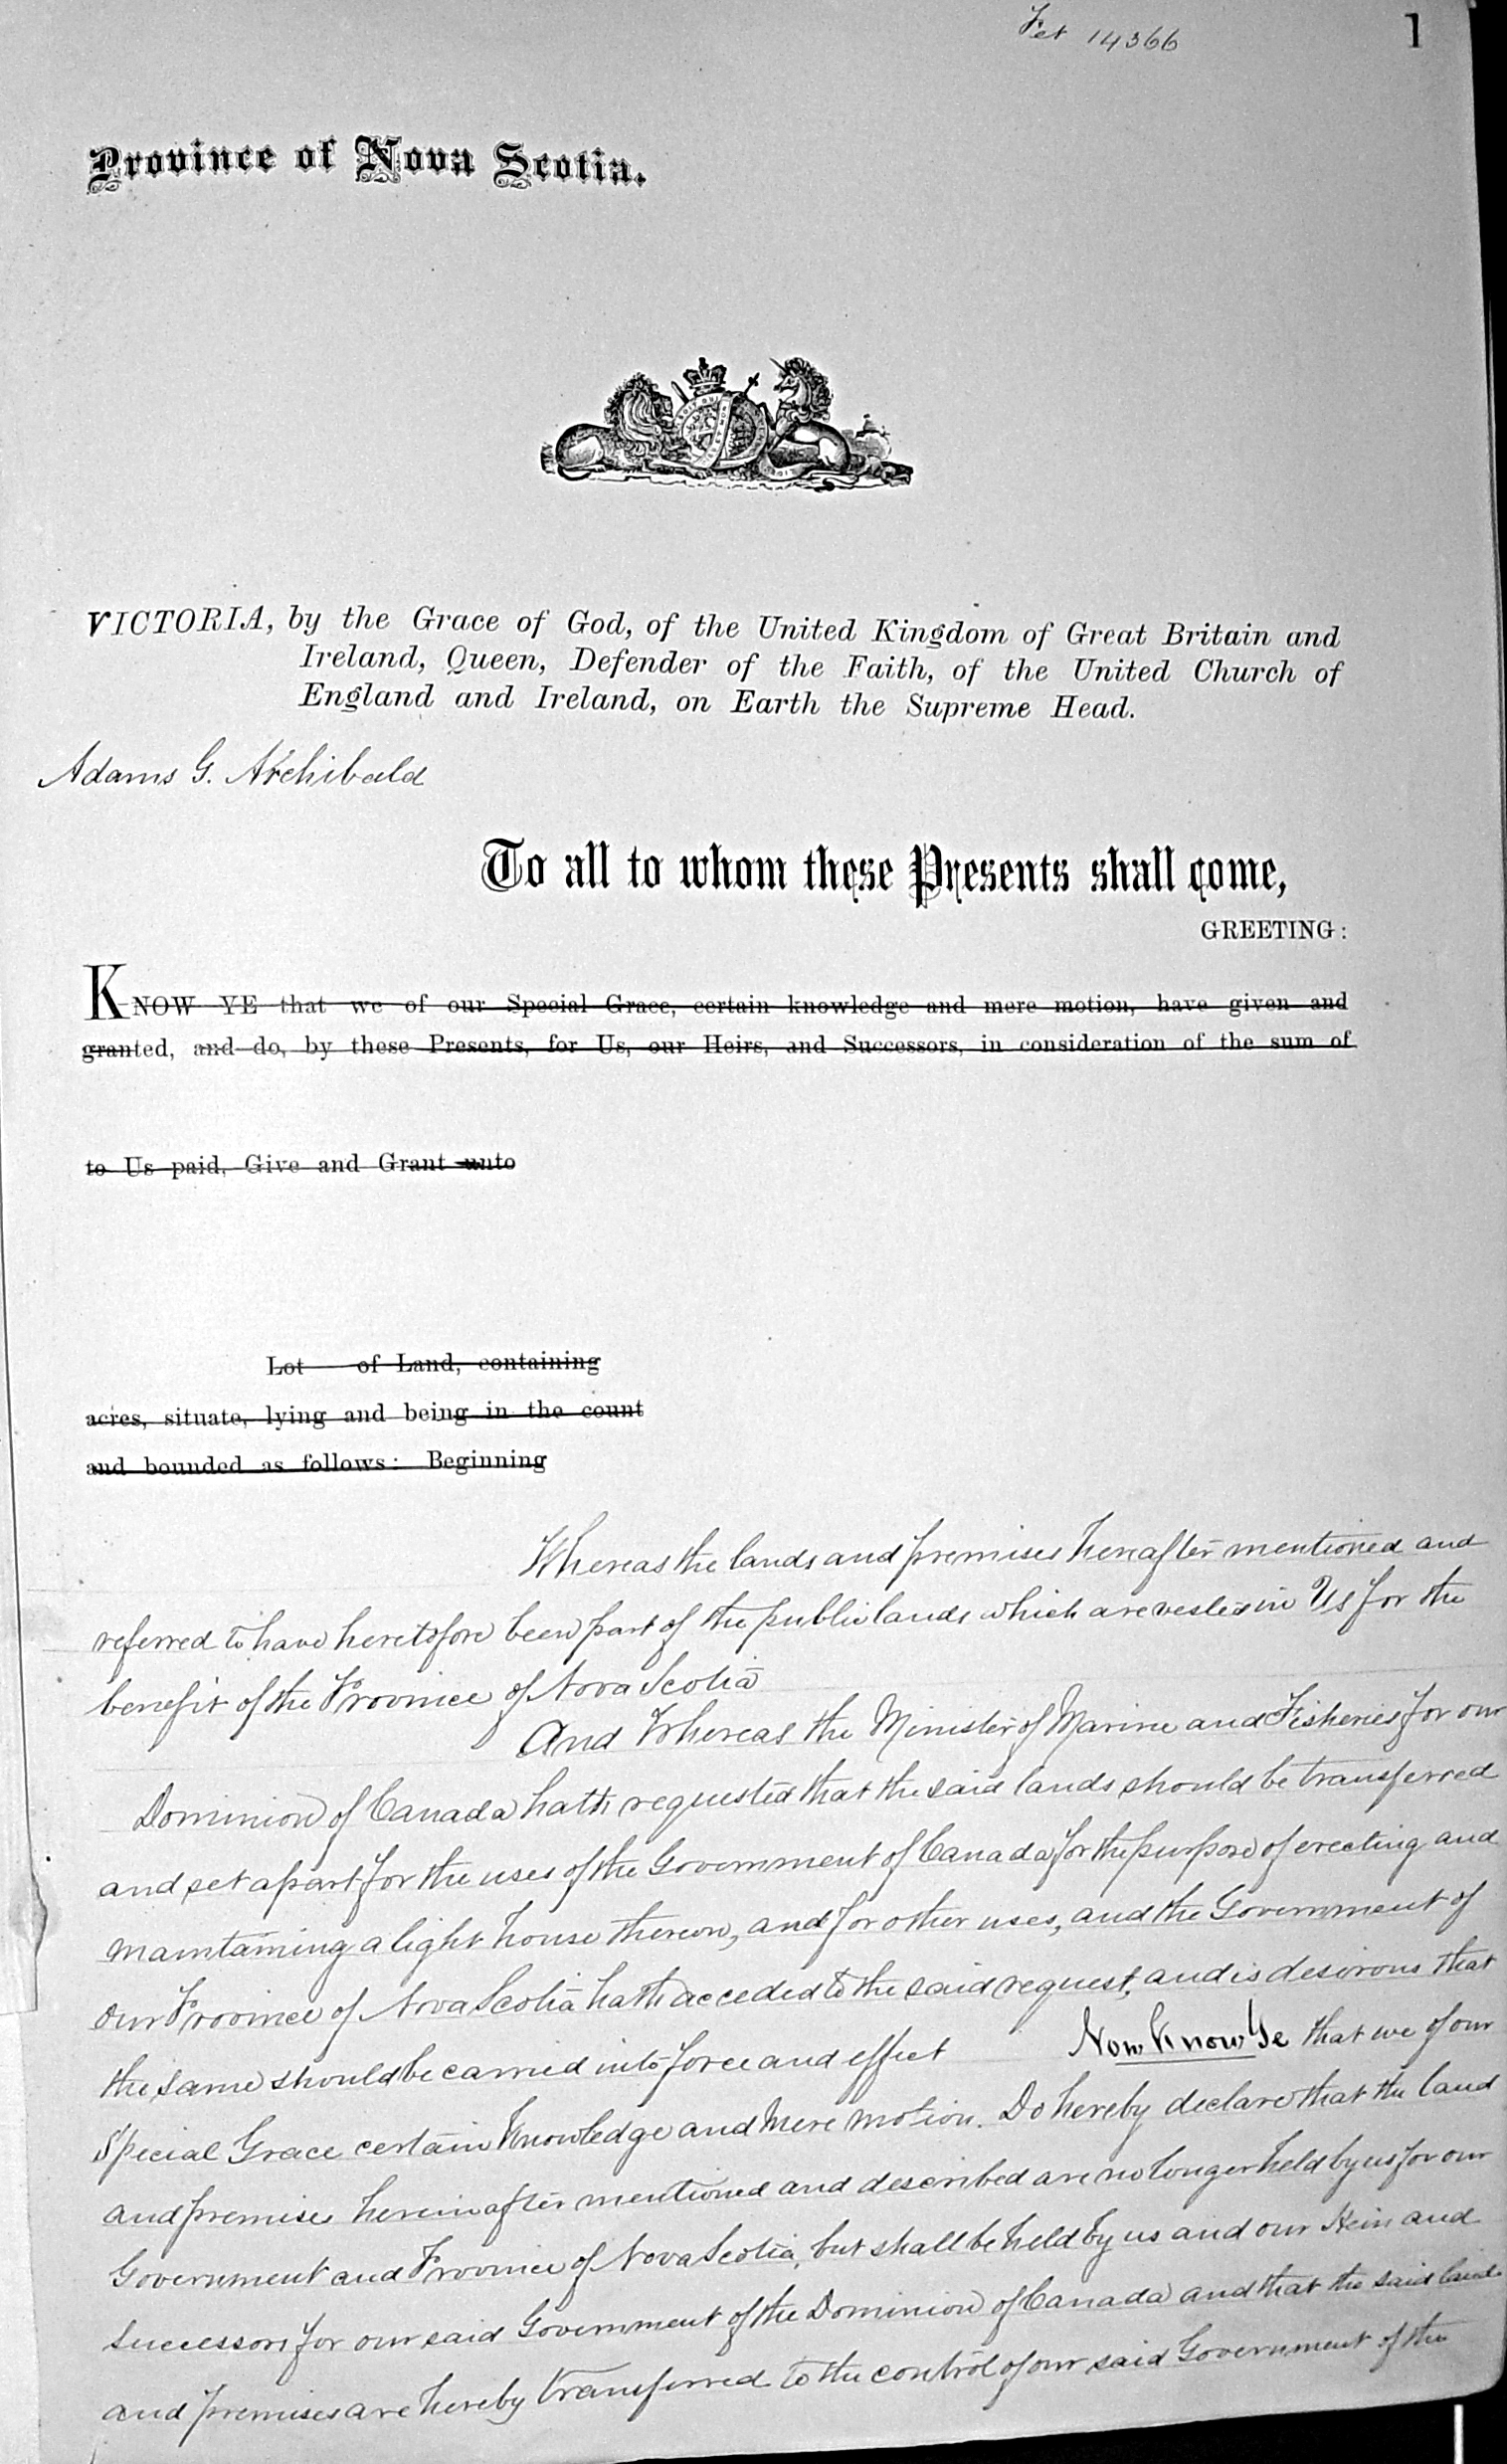 Pet 14366
1
Province of Nova Scotia.
VICTORIA, by the Grace of God, of the United Kingdom of Great Britain and
Ireland, Queen, Defender of the Faith, of the United Church of
England and Ireland, on Earth the Supreme Head.
Adams G. Archibald
To all to whom these Presents shall come,
GREETING:
KNOW YE that we of our Special Grace, certain knowledge and mere motion, have given and
granted, and do, by these Presents, for Us, our Heirs, and Successors, in consideration of the sum of
to Us paid, Give and Grant unto
Lot of Land, containing
acres, situate, lying and being in the count
and bounded as follows: Beginning
Whereas the lands and premises hereafter mentioned and
referred to have heretofore been part of the public lands which are vested in Us for the
benefit of the Province of Nova Scotia
And Whereas the Minister of Marine and Fisheries for our
Dominion of Canada hath requested that the said lands should be transferred
and set apart for the uses of the Government of Canada for the purpose of erecting and
maintaining a light house thereon, and for other uses, and the Government of
our Province of Nova Scotia hath acceded to the said request, and is desirous that
the same should be carried into force and effect Now Know Ye that we of our
Special Grace certain Knowledge and Mere motion. Do hereby declare that the land
and premises hereinafter mentioned and described are no longer held by us for our
Government and Province of Nova Scotia, but shall be held by us and our Heirs and
Successors for our said Government of the Dominion of Canada and that the said lands
and premises are hereby transferred to the control of our said Government of the